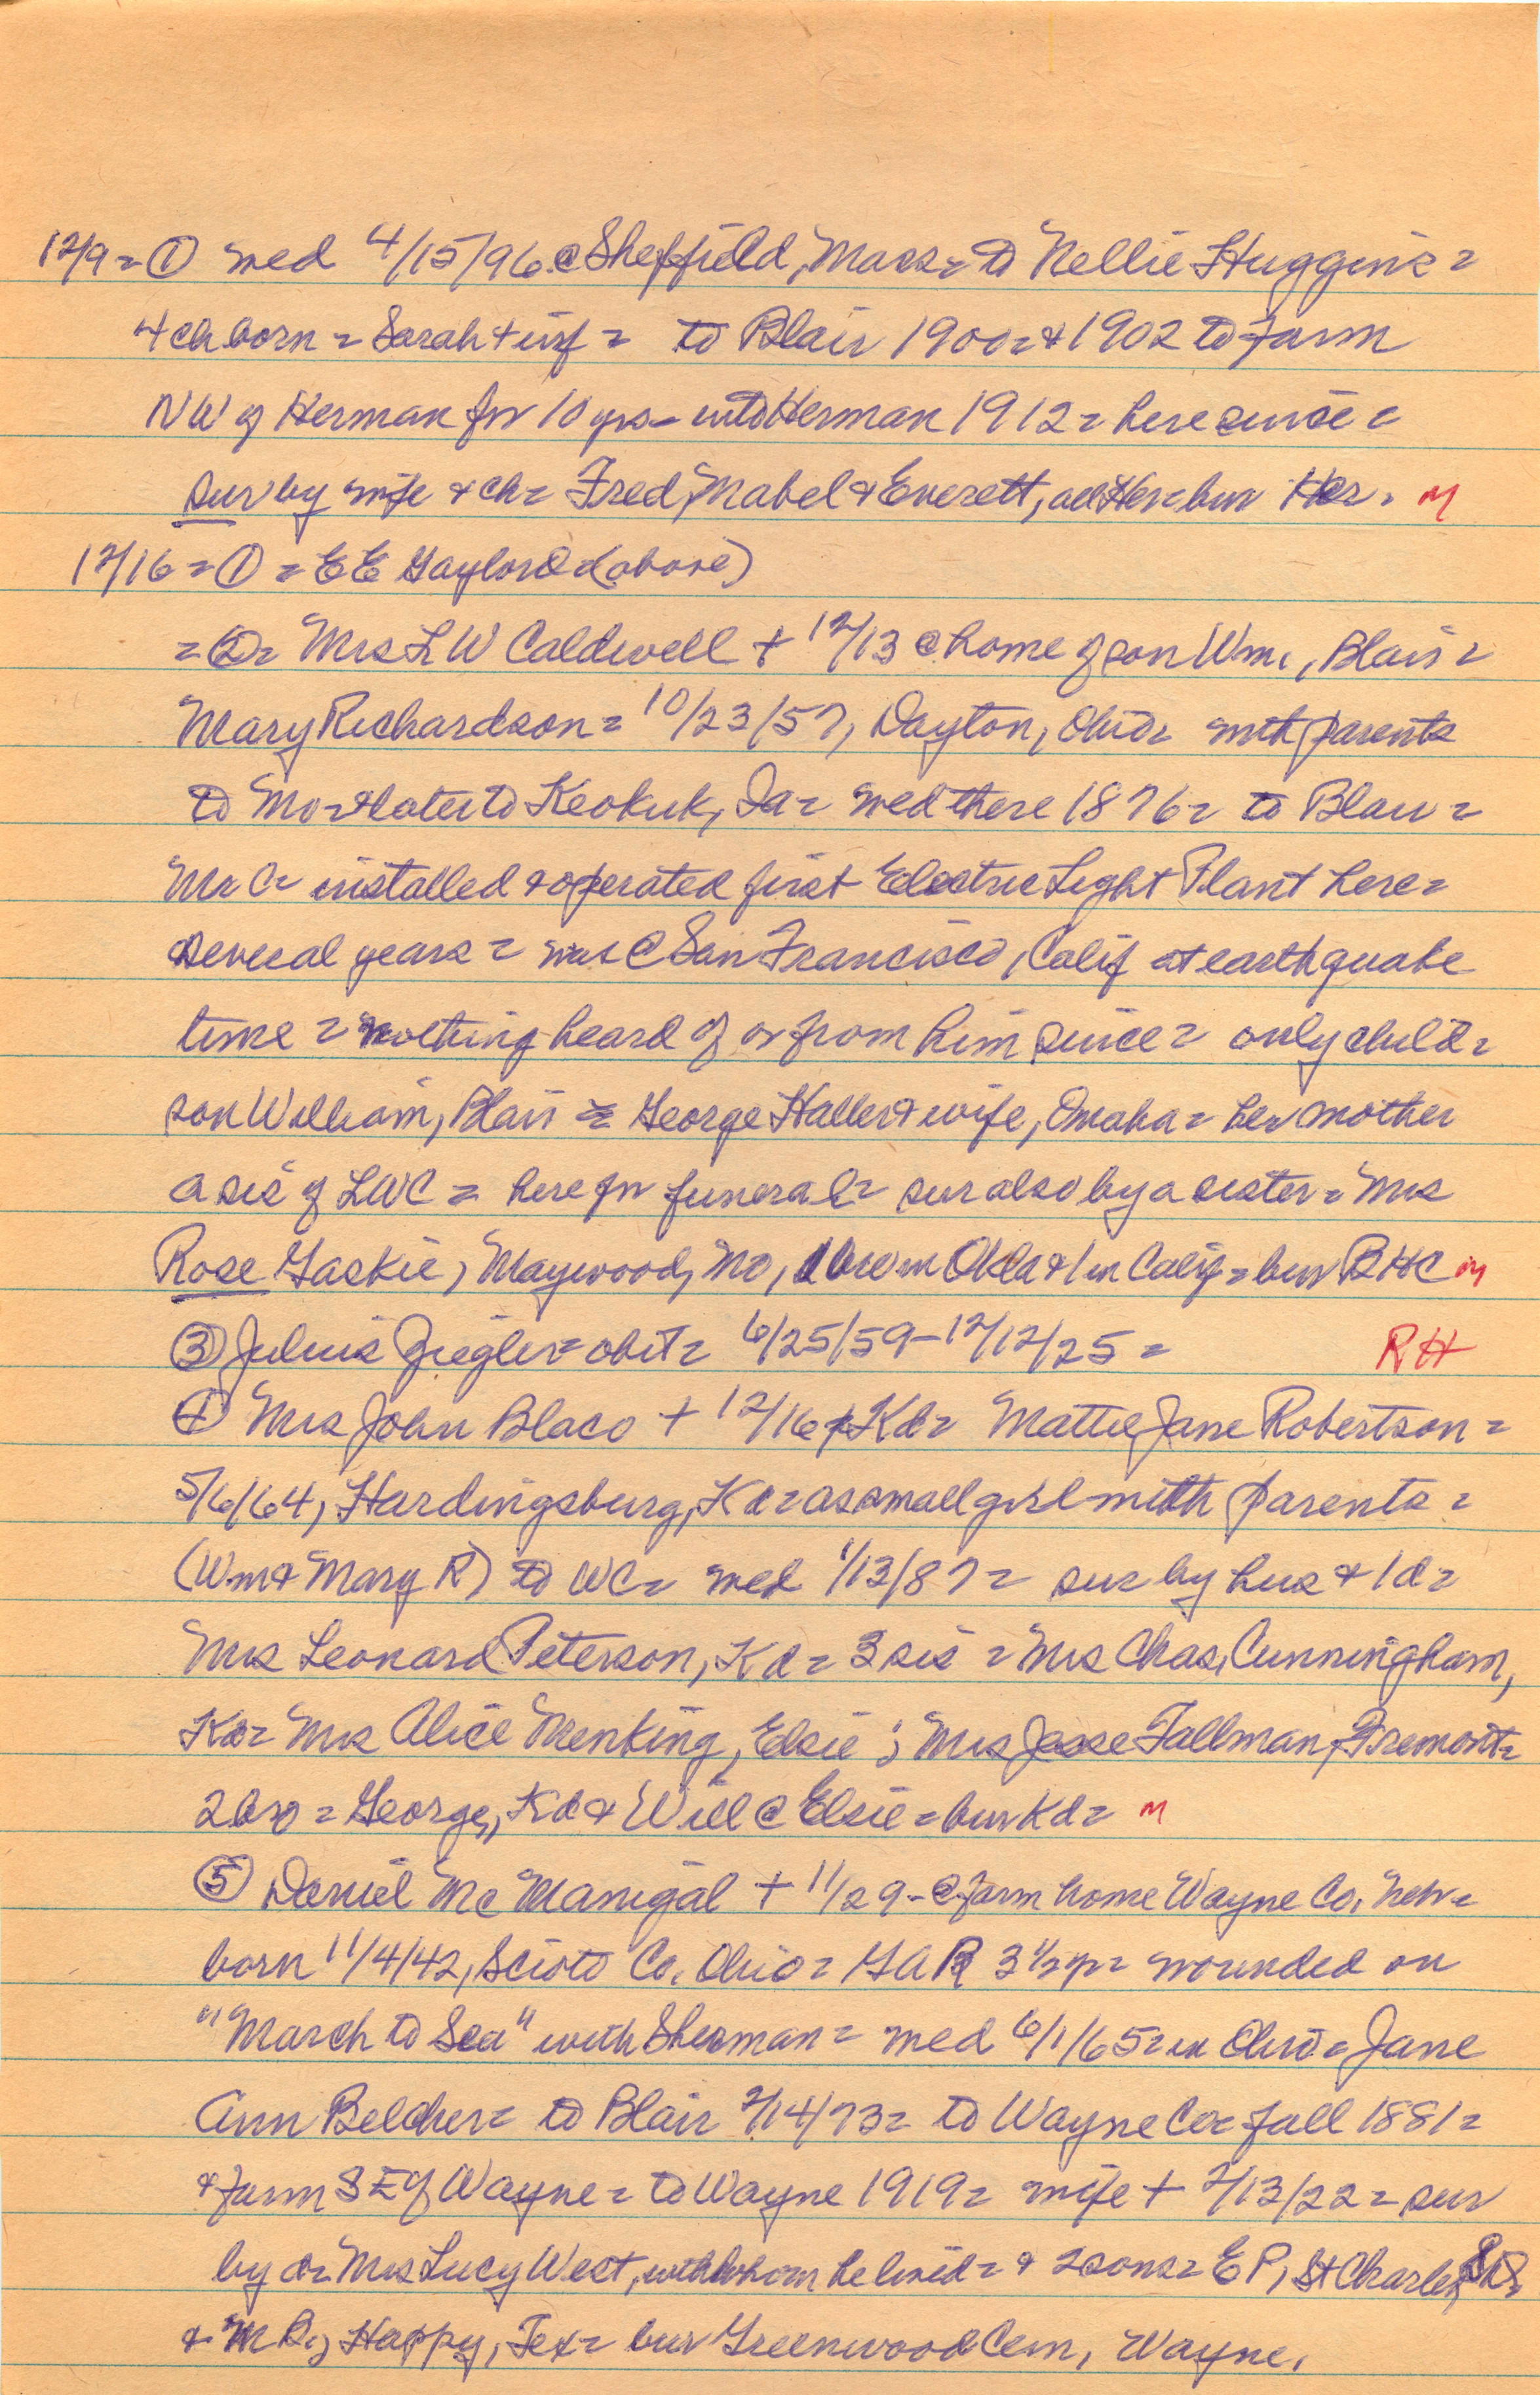 12/9 = ① med 4/15/96 @ Sheffield, Mass = to Nellie Huggins =
4 ch born = Sarah + inf = to Blair 1900 = & 1902 to farm
NW of Herman for 10 yrs = into Herman 1912 = here since =
sur by wife & ch = Fred, Mabel & Everett, all Her = bur Her. M
12/16 = ① = E E Gaylord = (above)
= ② = Mrs L W Caldwell + 12/13 @ home of son Wm., Blair =
Mary Richardson = 10/23/57, Dayton, Ohio = with parents
to Mo = & later to Keokuk, Ia = med there 1876 = to Blair =
Mr C = installed & operated first Electric Light Plant here =
several years = was @ San Francisco, Calif at earthquake
time = nothing heard of or from him since = only child =
son William, Blair = George Haller & wife, Omaha = her mother
a sis of LWC = here for funeral = sur also by a sister = Mrs
Rose Gaskie, Maywood, Mo, 1 bro in Okla & 1 in Calif = bur BHC M
③ Julius Ziegler = obit = 6/25/59 - 12/12/25 = RH
④ Mrs John Blaco + 12/16 Kd = Mattie Jane Robertson =
5/6/64, Hardingsburg, Kd = as small girl with parents =
(Wm & Mary R) to WC = med 1/13/87 = sur by hus & 1 d =
Mrs Leonard Peterson, Kd = 3 sis = Mrs Chas, Cunningham,
Kd = Mrs Alice Menking, Elsie ; Mrs Jesse Tallman, Fremont =
2 bro = George, Kd & Will @ Elsie = bur Kd = M
⑤ Daniel Mc Manigal + 11/29 - @ farm home Wayne Co. Neb =
born 11/4/42, Scioto Co. Ohio = GAR 3 1/2 yr = wounded on
"March to Sea" with Sherman = med 6/1/65 = in Ohio = Jane
Ann Belcher = to Blair 2/14/73 = to Wayne Co = fall 1881 =
& farm SE of Wayne = to Wayne 1919 = wife + 2/13/22 = sur
by d = Mrs Lucy West, with whom he lived = & 2 sons = E P, St Charles, SD
& M R, Happy, Tex = bur Greenwood Cem, Wayne.